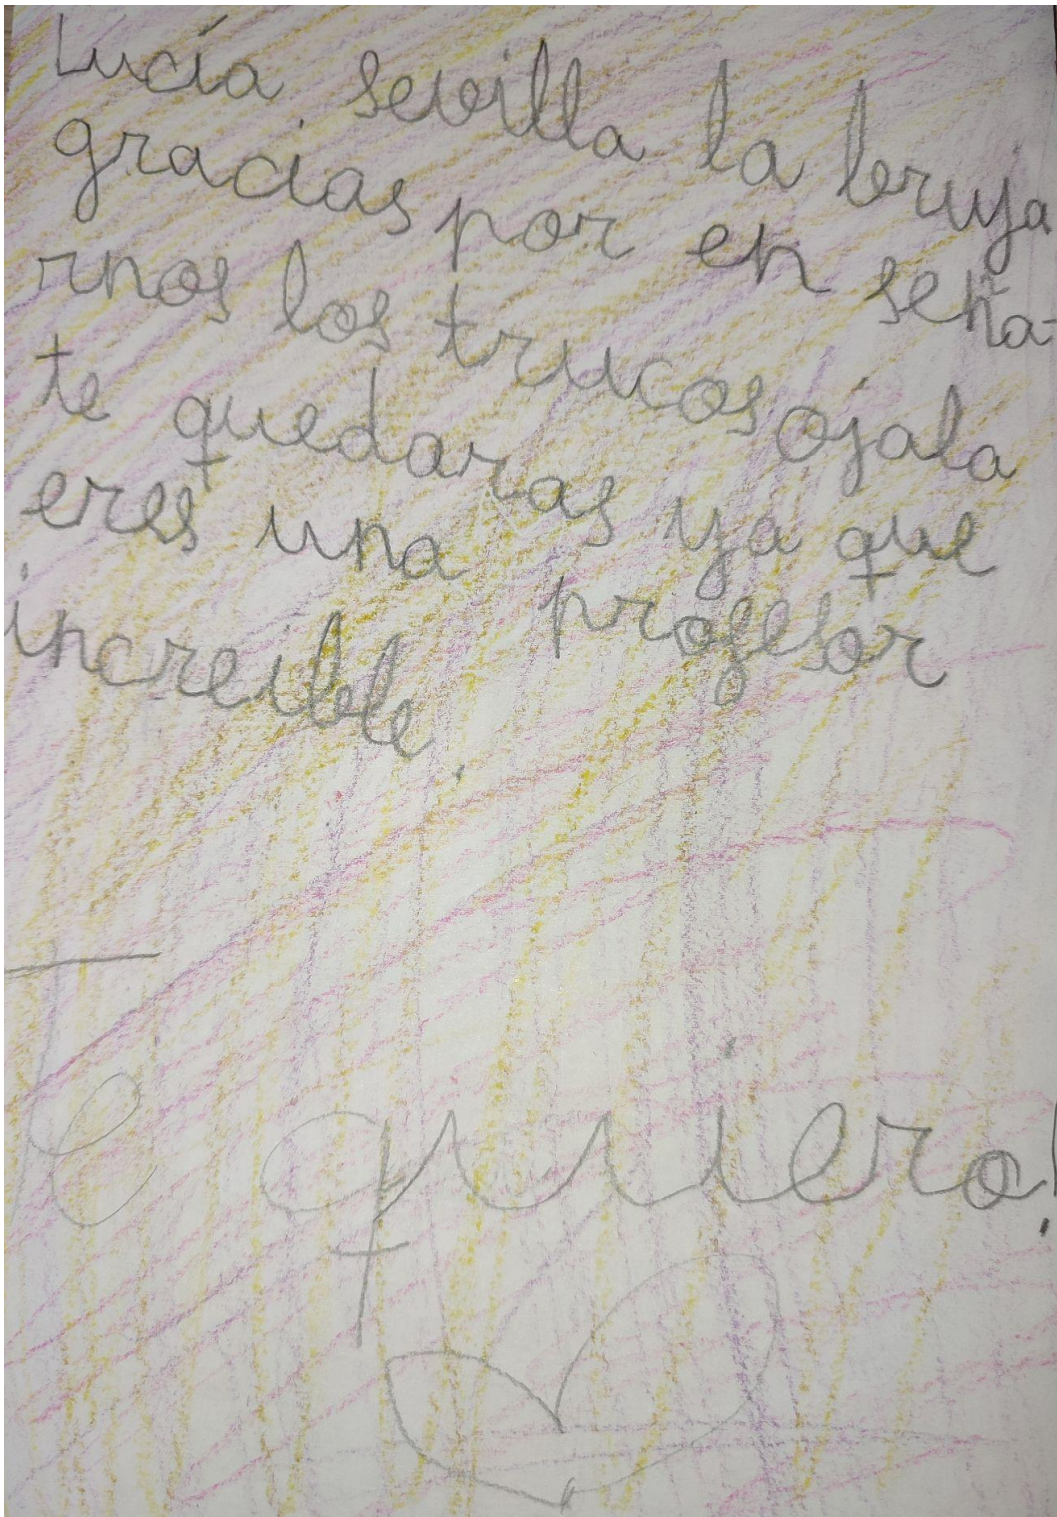 Lucía sevilla la bruja
gracias por en seña-
rnos los trucos ojala
te quedaras ya que
eres una profesor
increible.
Te quiero!